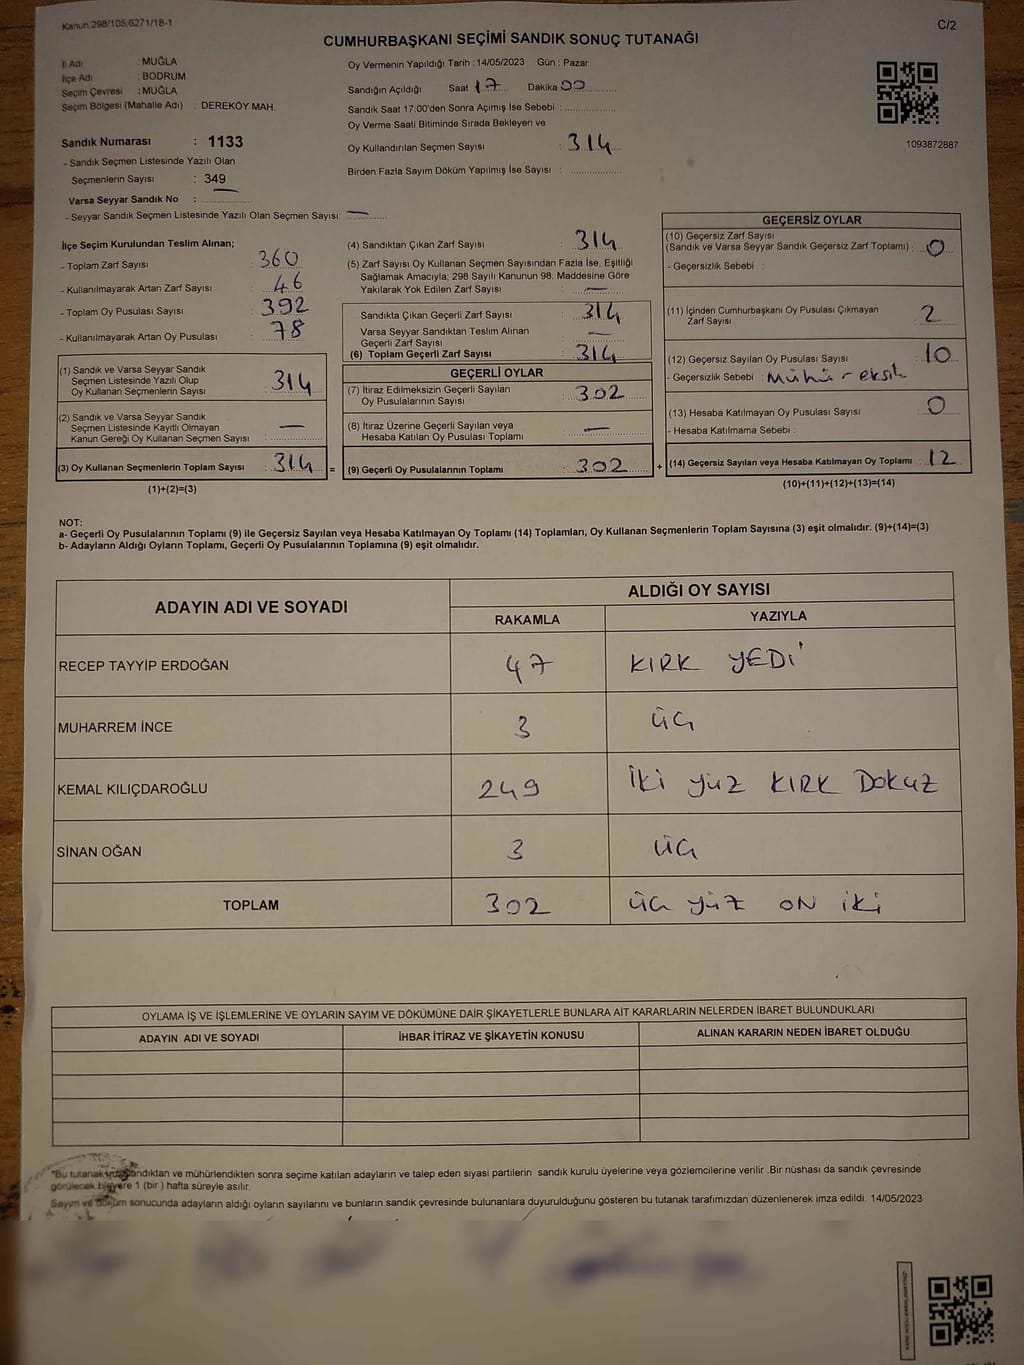 Kanun:298/105;6271/18-1
C/2
CUMHURBAŞKANI SEÇİMİ SANDIK SONUÇ TUTANAĞI
İl Adı : MUĞLA
İlçe Adı : BODRUM
Seçim Çevresi : MUĞLA
Seçim Bölgesi (Mahalle Adı) : DEREKÖY MAH.
Sandık Numarası : 1133
- Sandık Seçmen Listesinde Yazılı Olan
Seçmenlerin Sayısı : 349
Varsa Seyyar Sandık No : —
- Seyyar Sandık Seçmen Listesinde Yazılı Olan Seçmen Sayısı: —
Oy Vermenin Yapıldığı Tarih : 14/05/2023 Gün : Pazar
Sandığın Açıldığı Saat 17 Dakika 00
Sandık Saat 17:00'den Sonra Açımış İse Sebebi :
Oy Verme Saati Bitiminde Sırada Bekleyen ve
Oy Kullandırılan Seçmen Sayısı : 314
Birden Fazla Sayım Döküm Yapılmış İse Sayısı :
1093872887
İlçe Seçim Kurulundan Teslim Alınan;
- Toplam Zarf Sayısı : 360
- Kullanılmayarak Artan Zarf Sayısı : 46
- Toplam Oy Pusulası Sayısı : 392
- Kullanılmayarak Artan Oy Pusulası : 78
(1) Sandık ve Varsa Seyyar Sandık
Seçmen Listesinde Yazılı Olup
Oy Kullanan Seçmenlerin Sayısı : 314
(2) Sandık ve Varsa Seyyar Sandık
Seçmen Listesinde Kayıtlı Olmayan
Kanun Gereği Oy Kullanan Seçmen Sayısı : —
(3) Oy Kullanan Seçmenlerin Toplam Sayısı : 314 =
(1)+(2)=(3)
(4) Sandıktan Çıkan Zarf Sayısı : 314
(5) Zarf Sayısı Oy Kullanan Seçmen Sayısından Fazla İse, Eşitliği
Sağlamak Amacıyla; 298 Sayılı Kanunun 98. Maddesine Göre
Yakılarak Yok Edilen Zarf Sayısı : —
Sandıkta Çıkan Geçerli Zarf Sayısı : 314
Varsa Seyyar Sandıktan Teslim Alınan
Geçerli Zarf Sayısı : —
(6) Toplam Geçerli Zarf Sayısı : 314
GEÇERLİ OYLAR
(7) İtiraz Edilmeksizin Geçerli Sayılan
Oy Pusulalarının Sayısı : 302
(8) İtiraz Üzerine Geçerli Sayılan veya
Hesaba Katılan Oy Pusulası Toplamı : —
(9) Geçerli Oy Pusulalarının Toplamı : 302 +
GEÇERSİZ OYLAR
(10) Geçersiz Zarf Sayısı
(Sandık ve Varsa Seyyar Sandık Geçersiz Zarf Toplamı) : 0
- Geçersizlik Sebebi :
(11) İçinden Cumhurbaşkanı Oy Pusulası Çıkmayan
Zarf Sayısı : 2
(12) Geçersiz Sayılan Oy Pusulası Sayısı : 10
- Geçersizlik Sebebi : Mühür eksik
(13) Hesaba Katılmayan Oy Pusulası Sayısı : 0
- Hesaba Katılmama Sebebi :
(14) Geçersiz Sayılan veya Hesaba Katılmayan Oy Toplamı : 12
(10)+(11)+(12)+(13)=(14)
NOT:
a- Geçerli Oy Pusulalarının Toplamı (9) ile Geçersiz Sayılan veya Hesaba Katılmayan Oy Toplamı (14) Toplamları, Oy Kullanan Seçmenlerin Toplam Sayısına (3) eşit olmalıdır. (9)+(14)=(3)
b- Adayların Aldığı Oyların Toplamı, Geçerli Oy Pusulalarının Toplamına (9) eşit olmalıdır.
ADAYIN ADI VE SOYADI
ALDIĞI OY SAYISI
RAKAMLA YAZIYLA
RECEP TAYYİP ERDOĞAN 47 KIRK YEDİ
MUHARREM İNCE 3 üç
KEMAL KILIÇDAROĞLU 249 İki yüz KIRK DOKUZ
SİNAN OĞAN 3 üç
TOPLAM 302 üç yüz ON iki
OYLAMA İŞ VE İŞLEMLERİNE VE OYLARIN SAYIM VE DÖKÜMÜNE DAİR ŞİKAYETLERLE BUNLARA AİT KARARLARIN NELERDEN İBARET BULUNDUKLARI
ADAYIN ADI VE SOYADI İHBAR İTİRAZ VE ŞİKAYETİN KONUSU ALINAN KARARIN NEDEN İBARET OLDUĞU
*Bu tutanak imzalandıktan ve mühürlendikten sonra seçime katılan adayların ve talep eden siyasi partilerin sandık kurulu üyelerine veya gözlemcilerine verilir .Bir nüshası da sandık çevresinde
görülecek bir yere 1 (bir ) hafta süreyle asılır.
Sayım ve döküm sonucunda adayların aldığı oyların sayılarını ve bunların sandık çevresinde bulunanlara duyurulduğunu gösteren bu tutanak tarafımızdan düzenlenerek imza edildi. 14/05/2023